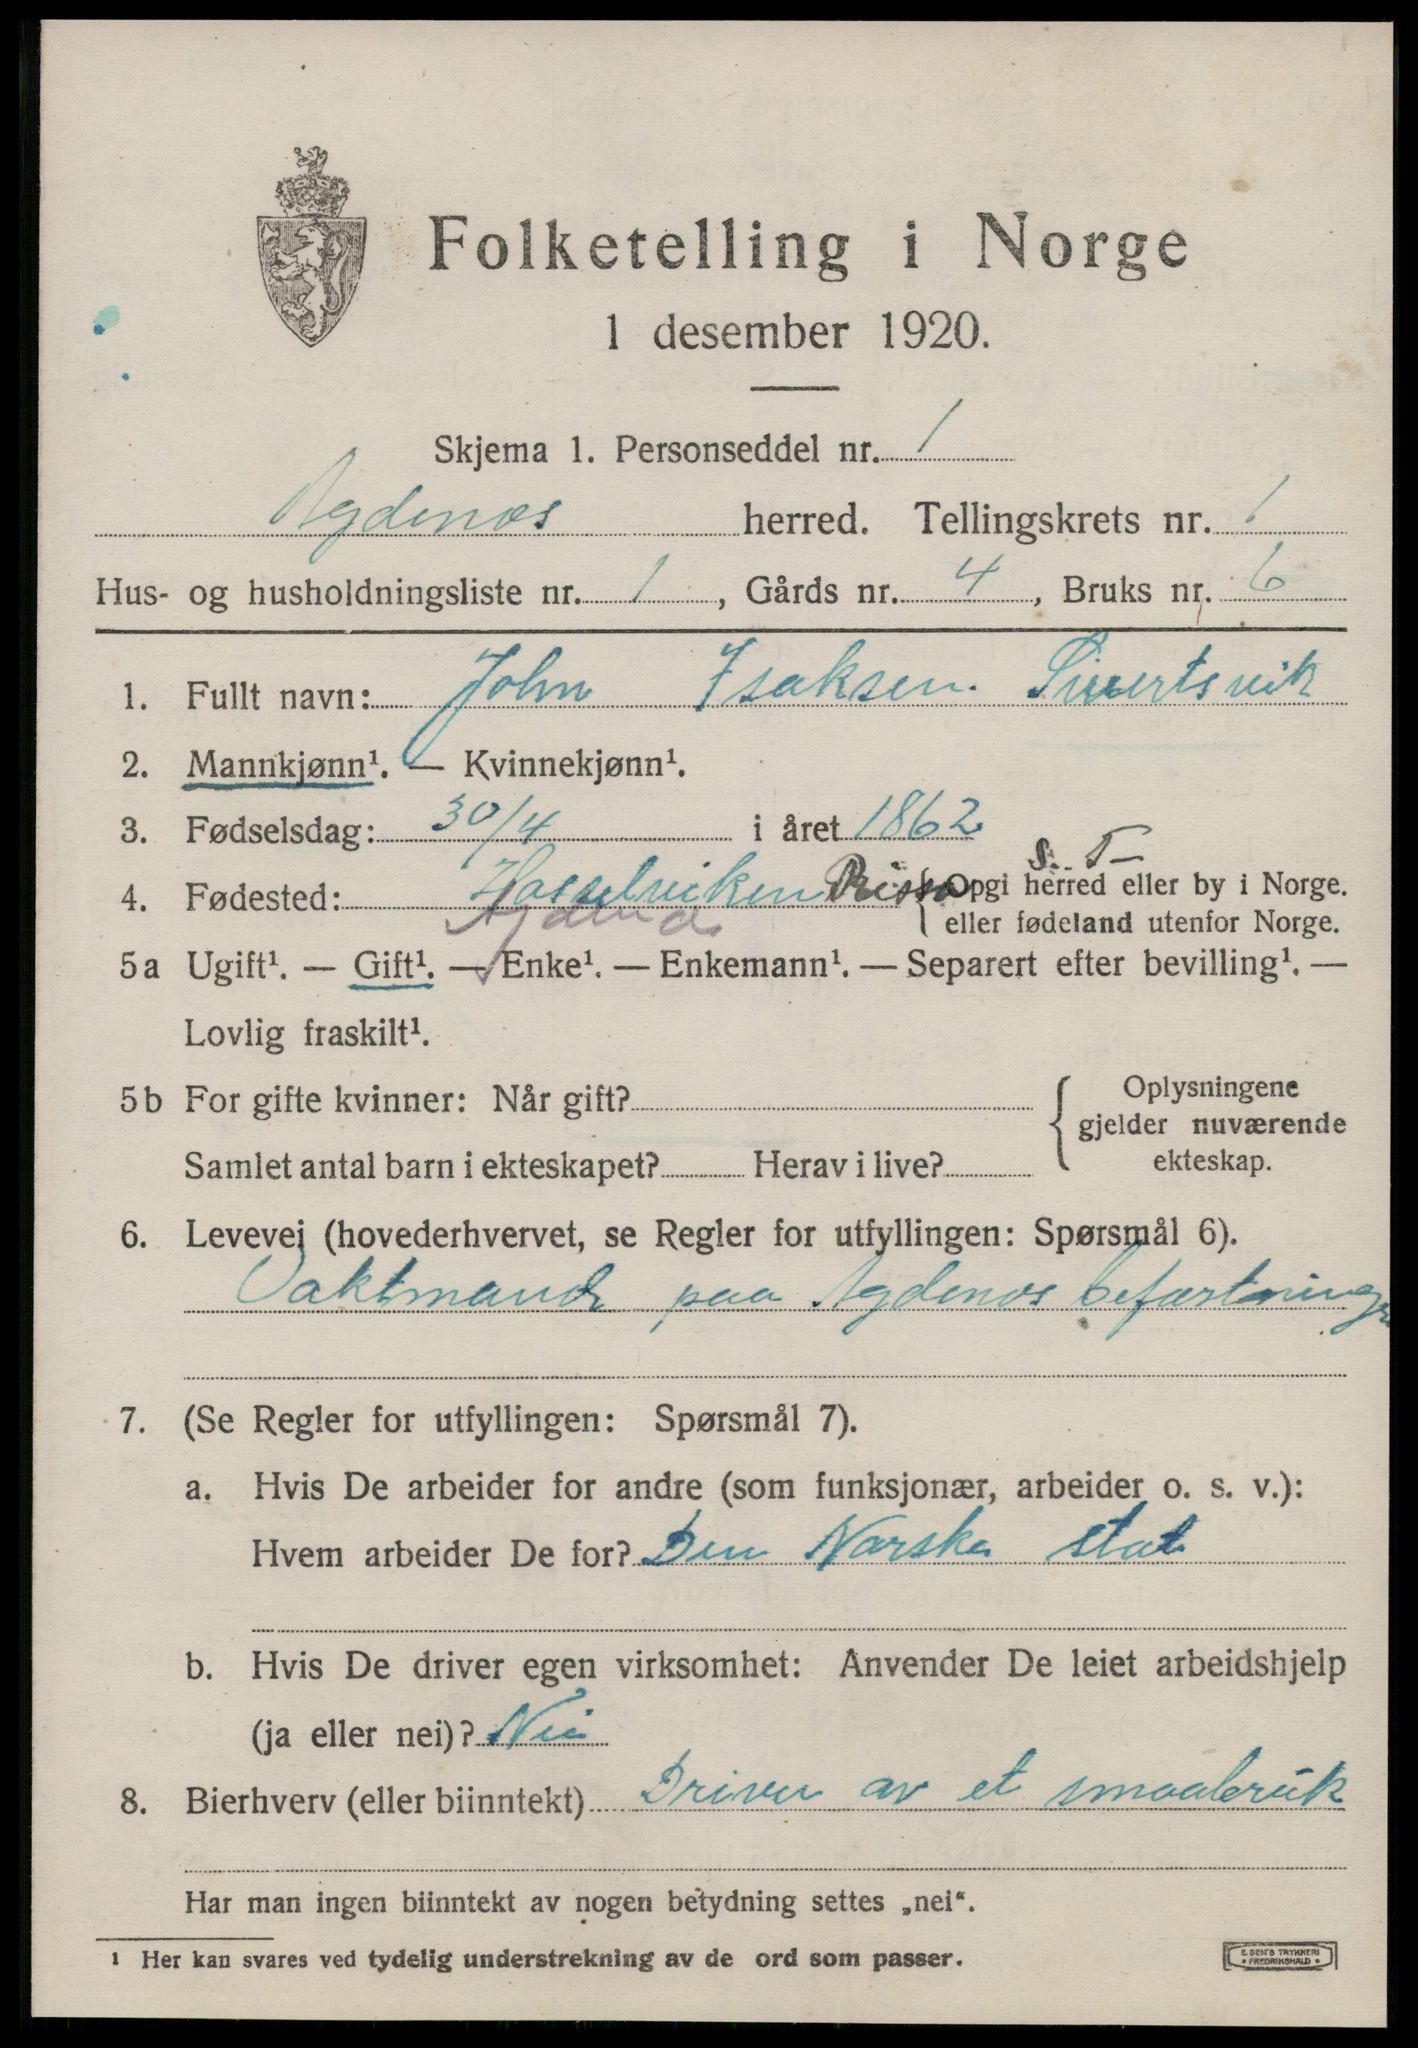 Folketelling i Norge
1 desember 1920.
Skjema 1. Personseddel nr. 1
Agdenes herred. Tellingskrets nr. 1
Hus- og husholdningsliste nr. 1, Gårds nr. 4, Bruks nr. 6
1. Fullt navn: John Isaksen. Sivertsvik
2. Mannkjønn¹. — Kvinnekjønn¹.
3. Fødselsdag: 30/4 i året 1862
S. T—
4. Fødested: Hasselviken Rissa { Opgi herred eller by i Norge.
Agdenes eller fødeland utenfor Norge.
5a Ugift¹. — Gift¹. — Enke¹. — Enkemann¹. — Separert efter bevilling¹. —
Lovlig fraskilt¹.
5b For gifte kvinner: Når gift? { Oplysningene
gjelder nuværende
Samlet antal barn i ekteskapet? Herav i live? ekteskap.
6. Levevei (hovederhvervet, se Regler for utfyllingen: Spørsmål 6).
Vaktmand paa Agdenes befæstninger
7. (Se Regler for utfyllingen: Spørsmål 7).
a. Hvis De arbeider for andre (som funksjonær, arbeider o. s. v.):
Hvem arbeider De for? Den Norske stat
b. Hvis De driver egen virksomhet: Anvender De leiet arbeidshjelp
(ja eller nei)? Nei
8. Bierhverv (eller biinntekt) Driver av et smaabruk
Har man ingen biinntekt av nogen betydning settes „nei“.
¹ Her kan svares ved tydelig understrekning av de ord som passer.
E. SEM'S TRYKKERI
• FREDRIKSHALD •